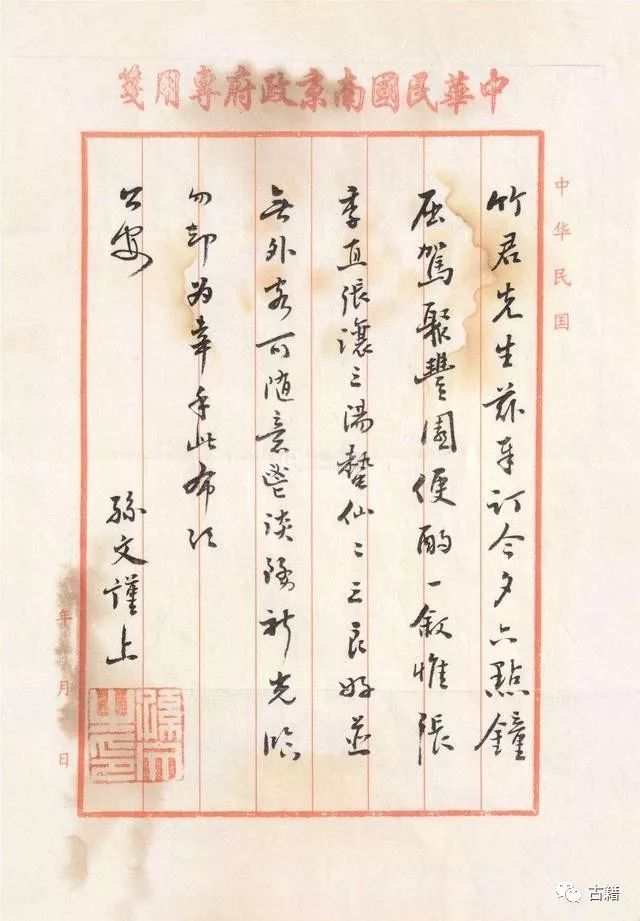 中華民國南京政府專用箋
中华民国
竹君先生茲奉訂今夕六點鐘
屈駕聚豐園便酌一敘惟張
季直張讓三湯蟄仙二三良好並
無外客可隨意鬯談務祈光臨
勿卻為幸手此布頌
公安
孫文謹上
年 月 日
孫文之印
古籍